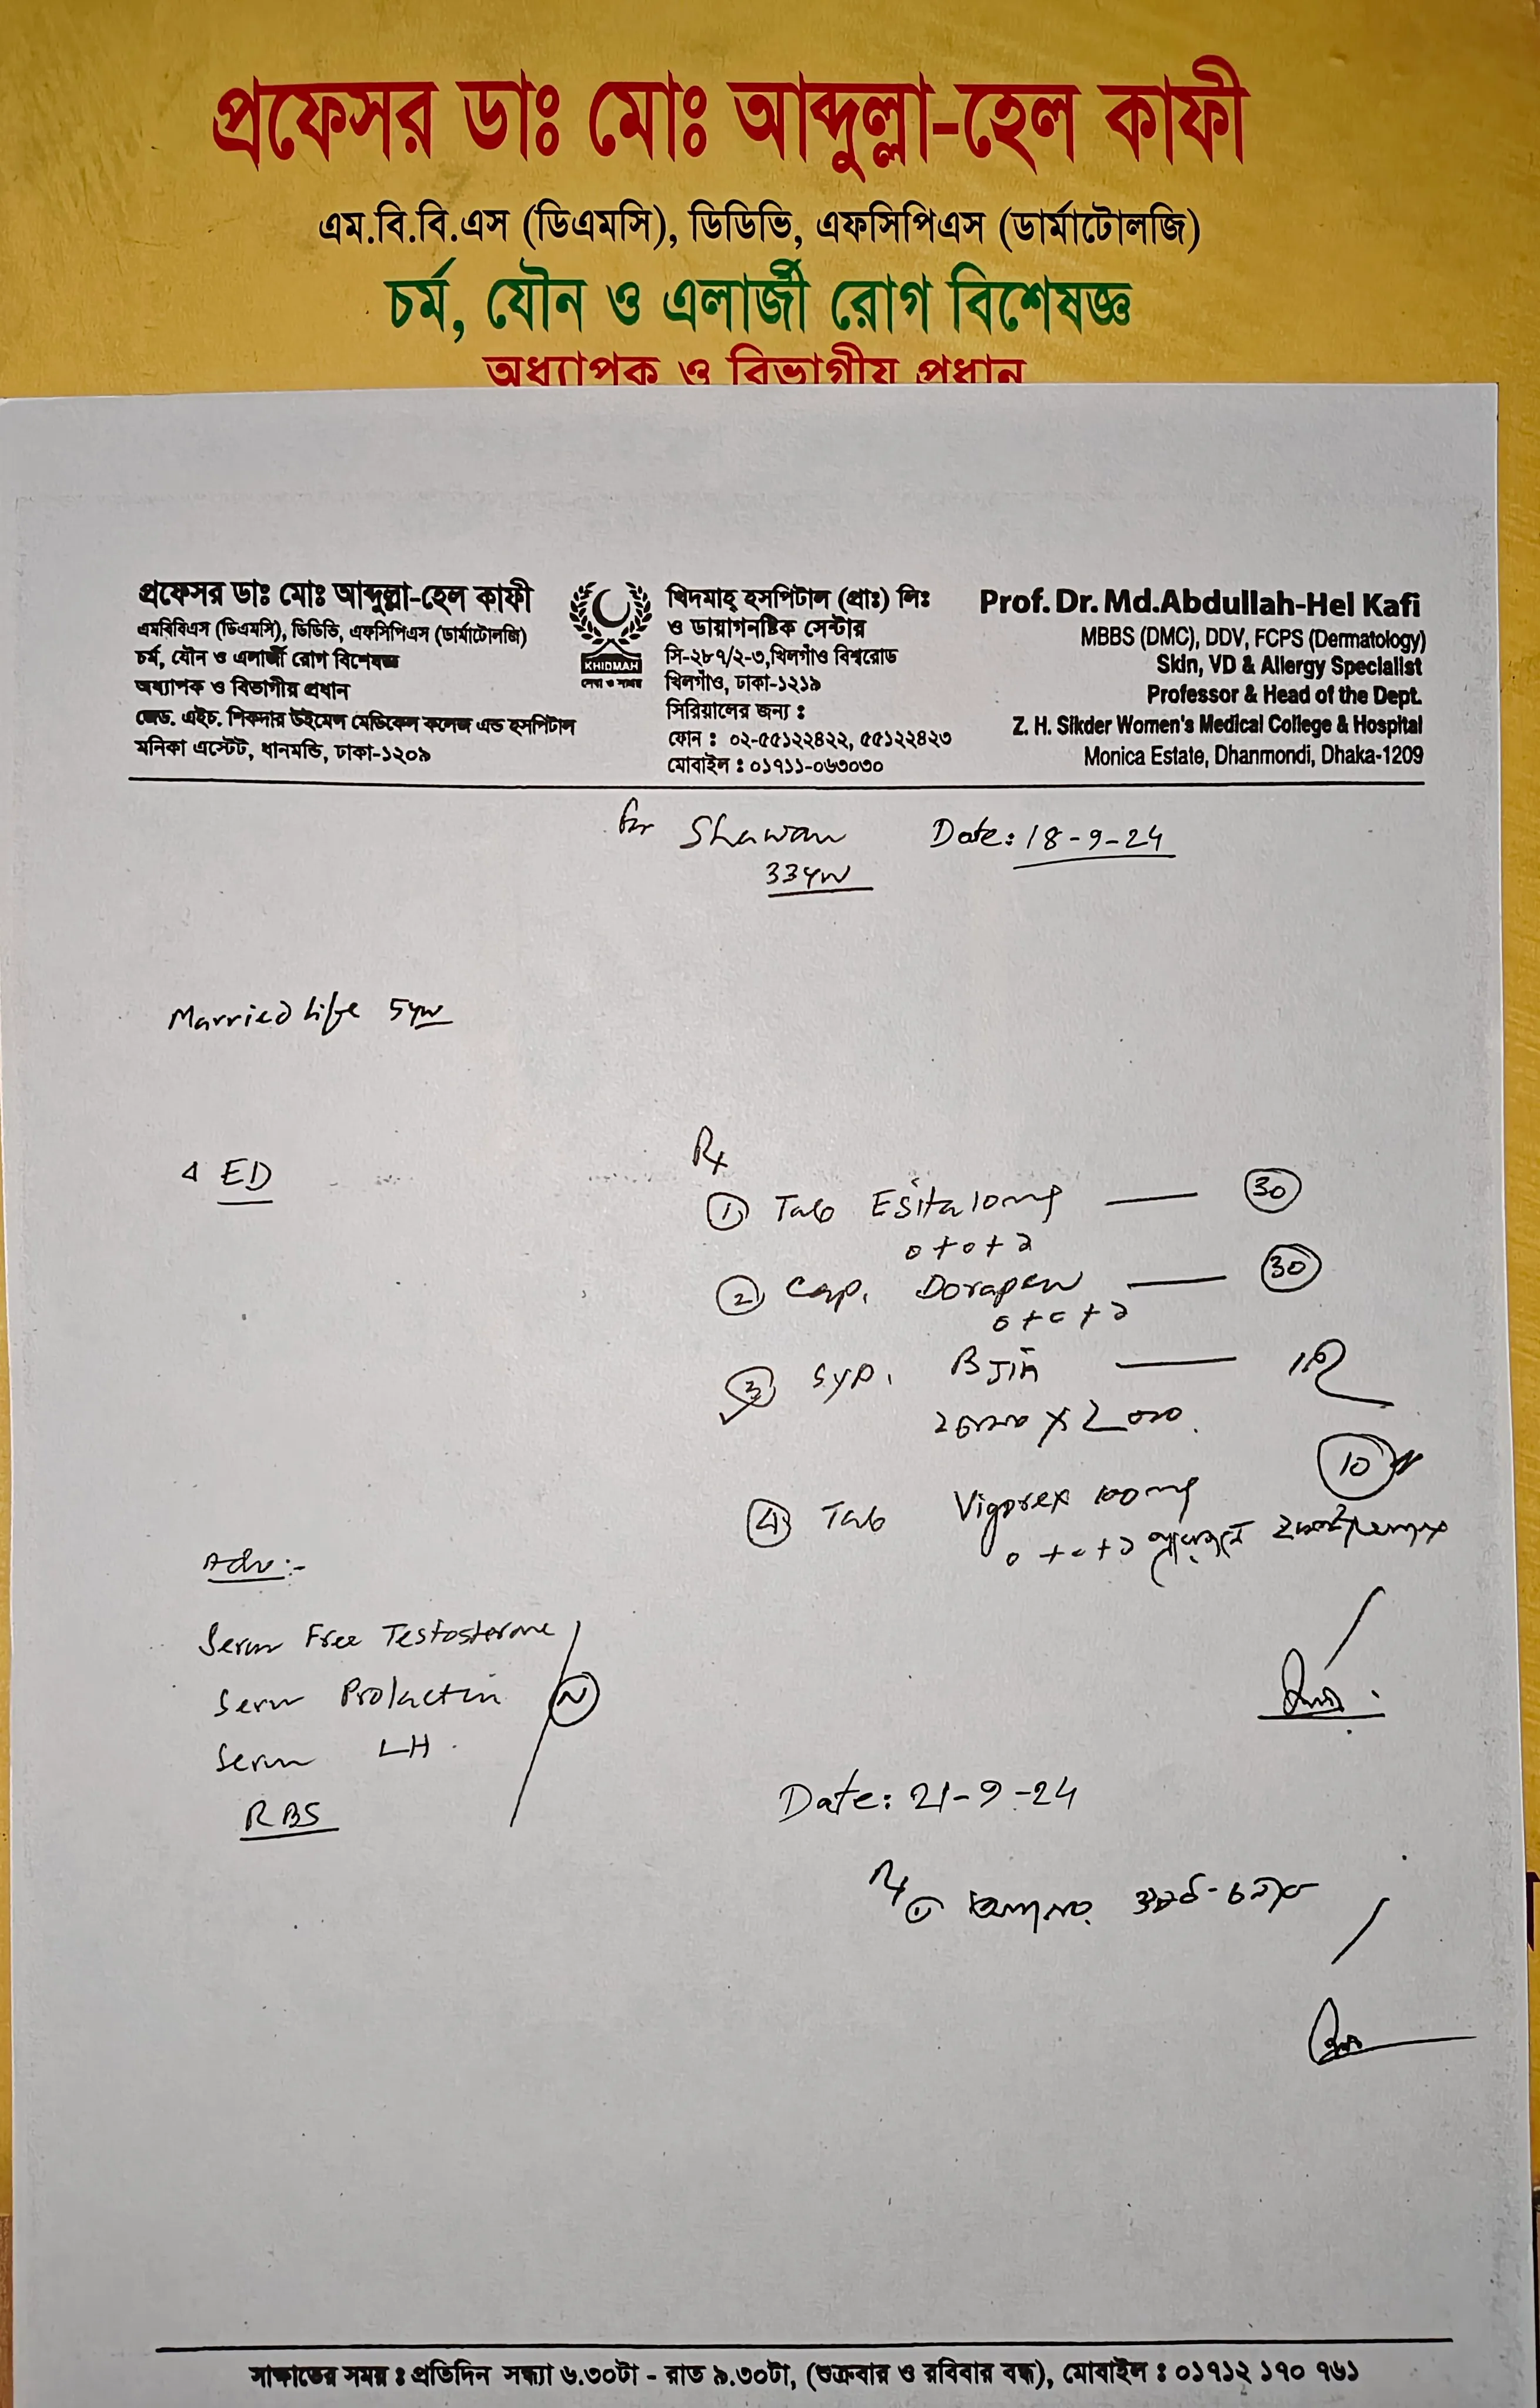 প্রফেসর ডাঃ মোঃ আব্দুল্লা-হেল কাফী
এম.বি.বি.এস (ডিএমসি), ডিডিভি, এফসিপিএস (ডার্মাটোলজি)
চর্ম, যৌন ও এলার্জী রোগ বিশেষজ্ঞ
অধ্যাপক ও বিভাগীয় প্রধান
প্রফেসর ডাঃ মোঃ আব্দুল্লা-হেল কাফী
এমবিবিএস (ডিএমসি), ডিডিভি, এফসিপিএস (ডার্মাটোলজি)
চর্ম, যৌন ও এলার্জী রোগ বিশেষজ্ঞ
অধ্যাপক ও বিভাগীয় প্রধান
জেড. এইচ. শিকদার উইমেন্স মেডিকেল কলেজ এন্ড হসপিটাল
মনিকা এস্টেট, ধানমন্ডি, ঢাকা-১২০৯
KHIDMAH
সেবা ও সাশ্রয়
খিদমাহ্ হসপিটাল (প্রাঃ) লিঃ
ও ডায়াগনষ্টিক সেন্টার
সি-২৮৭/২-৩,খিলগাঁও বিশ্বরোড
খিলগাঁও, ঢাকা-১২১৯
সিরিয়ালের জন্য :
ফোন : ০২-৫৫১২২৪২২, ৫৫১২২৪২৩
মোবাইল : ০১৭১১-০৬৩০৩০
Prof. Dr. Md.Abdullah-Hel Kafi
MBBS (DMC), DDV, FCPS (Dermatology)
Skin, VD & Allergy Specialist
Professor & Head of the Dept.
Z. H. Sikder Women's Medical College & Hospital
Monica Estate, Dhanmondi, Dhaka-1209
for Shawan Date: 18-9-24
33yrs
Married life 5yrs
ED
Rx
① Tab Esita 10mg — 30
0+0+১
② Cap. Dorapen — 30
0+0+১
③ Syp. B Jin
④ Tab Vigorex 100mg 10
0+0+১
Adv:-
Serum Free Testosterone
Serum Prolactin N
Serum LH
RBS
Date: 21-9-24
Rx
সাক্ষাতের সময় : প্রতিদিন সন্ধ্যা ৬.৩০টা - রাত ৯.৩০টা, (শুক্রবার ও রবিবার বন্ধ), মোবাইল : ০১৭১২ ১৭০ ৭৬১